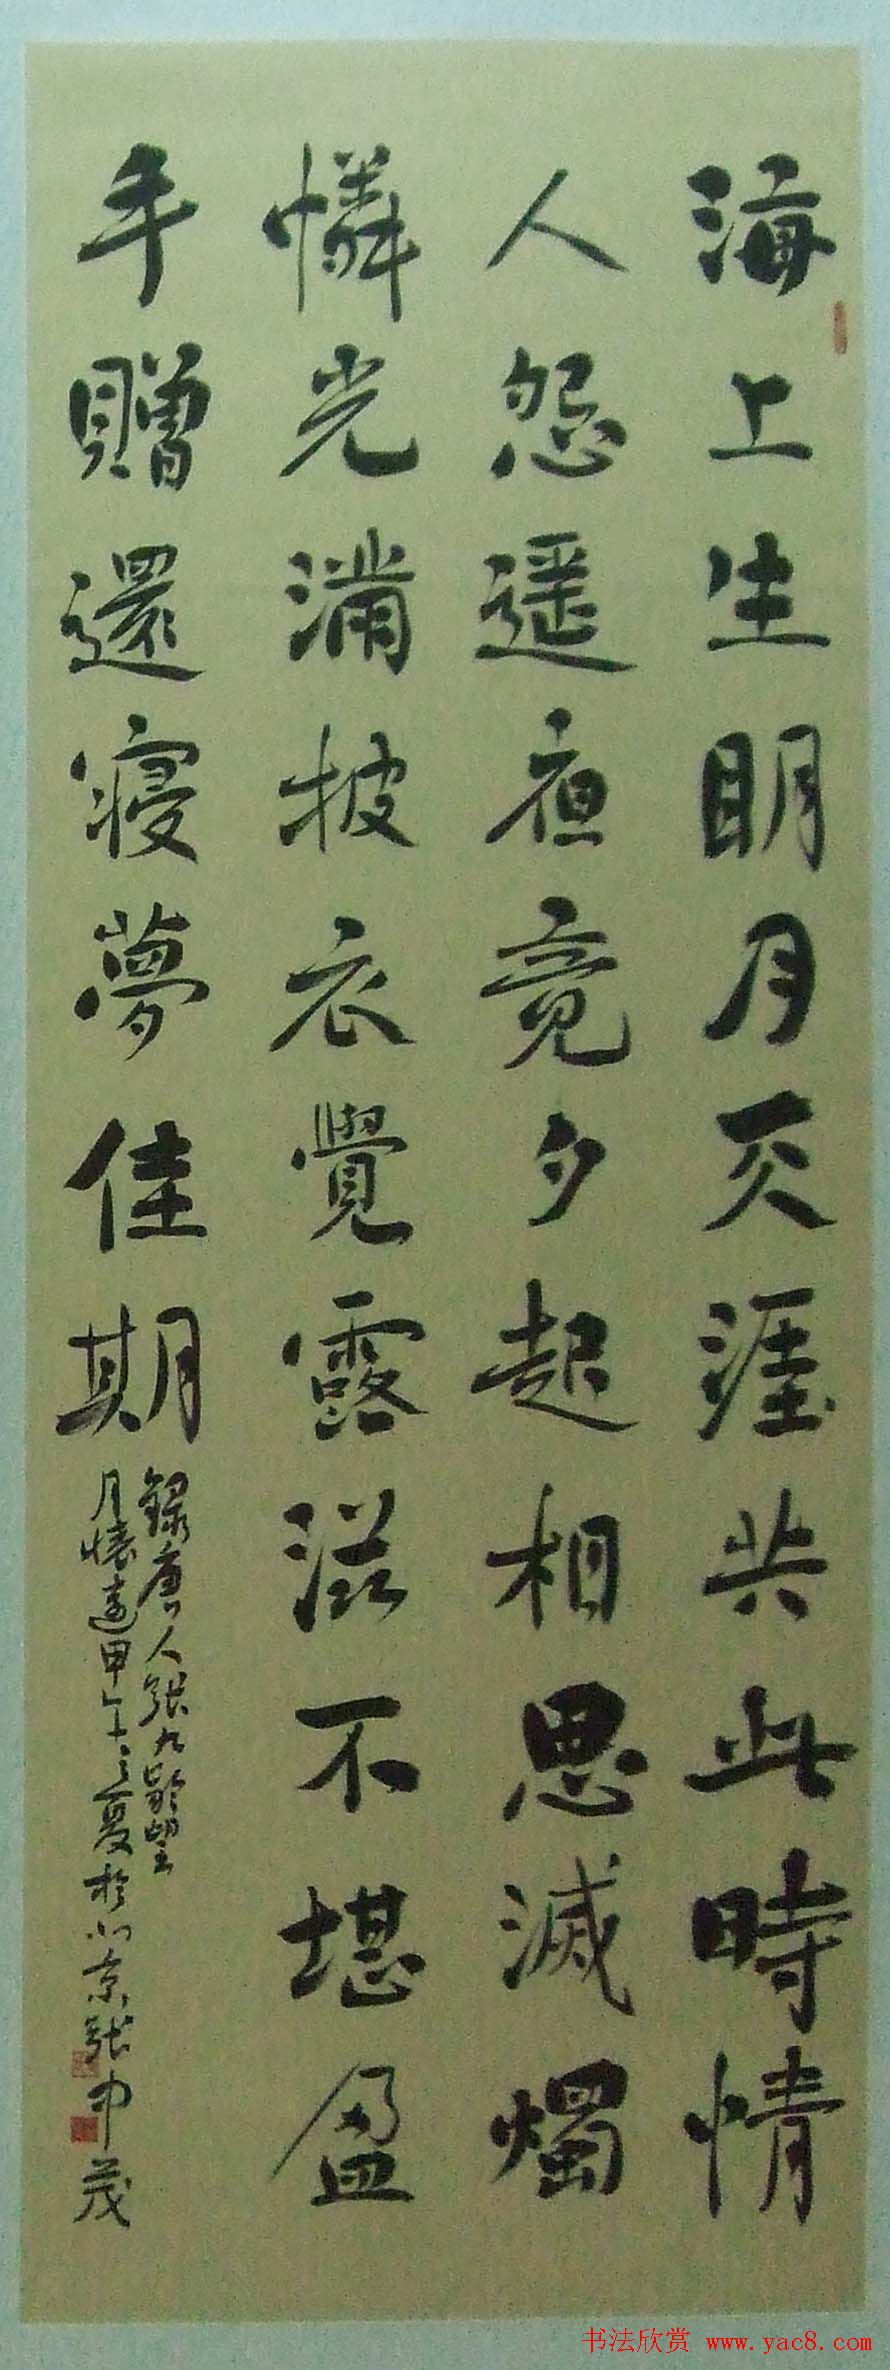 海上生明月天涯共此時情
人怨遥夜竟夕起相思滅燭
憐光滿披衣覺露滋不堪盈
手贈還寢夢佳期
錄唐人張九齡望
月懷遠甲午之夏於北京張中茂
书法欣赏 www.yac8.com